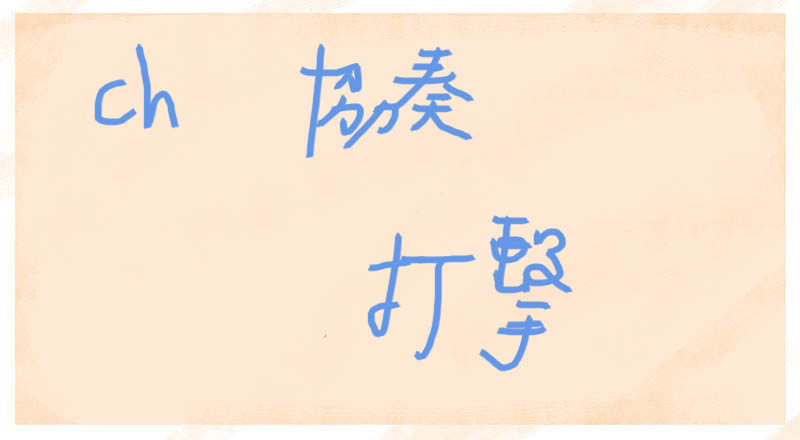 ch 協奏
打撃